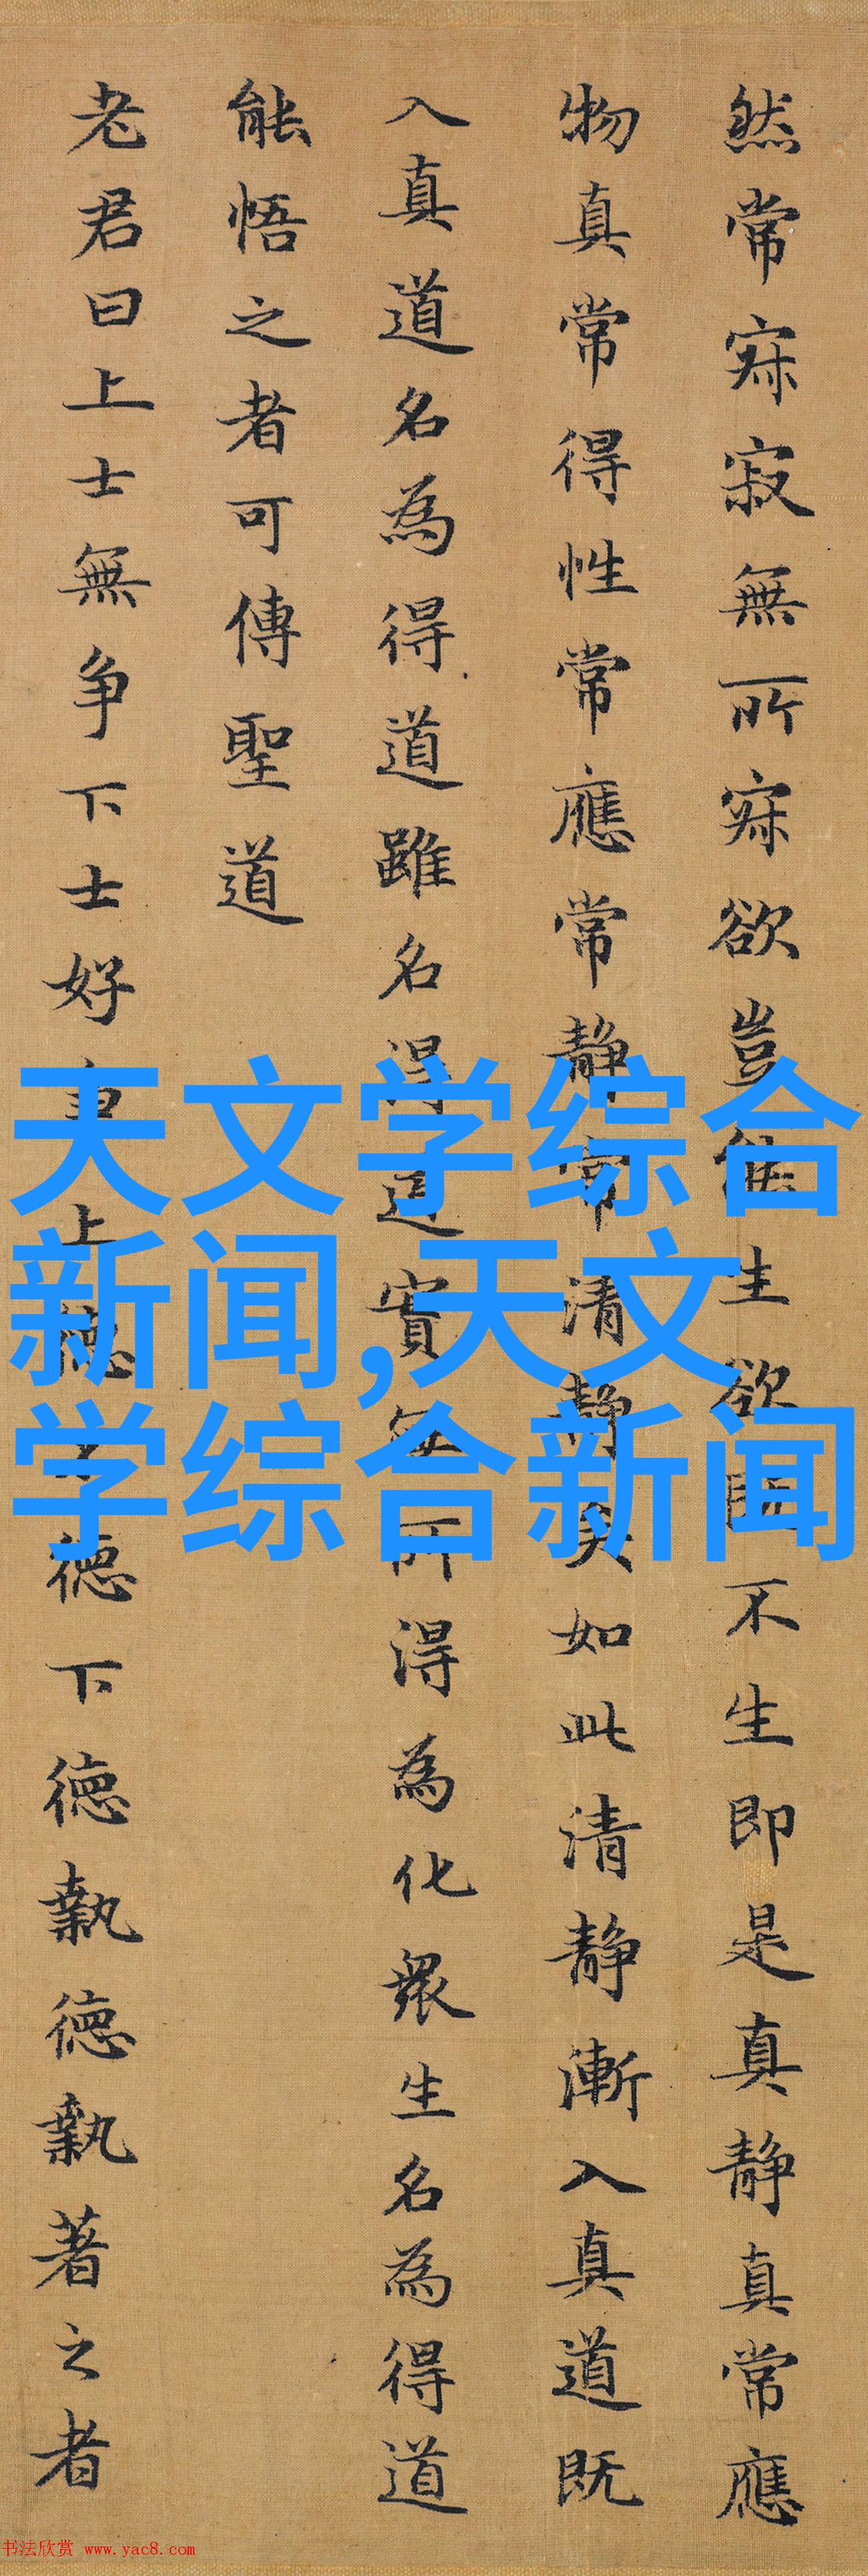 然常寂寂無所寂欲豈能生欲既不生即是真静真常應
物真常得性常應常静常清静矣如此清静漸入真道既
入真道名為得道雖名得道實無所得為化衆生名為得道
能悟之者可傳聖道
老君曰上士無争下士好争上德不德下德執德執著之者
天文学综合
新闻,天文
学综合新闻
书法欣赏 www.yac8.com